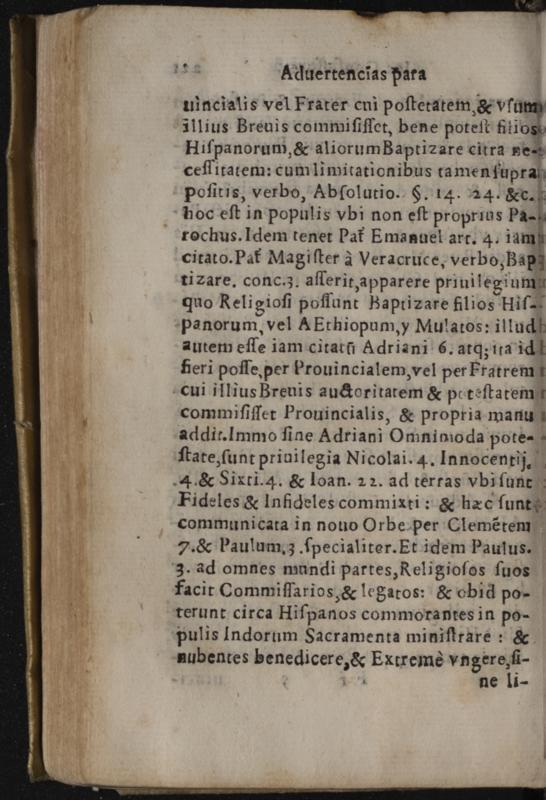 Aduertencĩas p̃ara
uincialis vel Frater cui postetatem, & vsum
illius Breuis commisisset, bene potest filios
Hispanorum, & aliorum Baptizare citra ne-
cessitatem: cum limitationibus tamen supra
positis, verbo, Absolutio. §. 14. 24. &c.
hoc est in populis vbi non est proprius Pa-
rochus. Idem tenet Pat̃ Emanuel art. 4. iam
citato. Pat̃ Magister à Veracruce, verbo, Bap
tizare. conc. 3. asserit, apparere priuilegium
quo Religiosi possunt Baptizare filios His-
panorum, vel AEthiopum, y Mulatos: illud
autem esse iam citatũ Adriani 6. atq; ita id
fieri posse, per Prouincialem, vel per Fratrem
cui illius Breuis auctoritatem & potestatem
commisisset Prouincialis, & propria manu
addit. Immo sine Adriani Omnimoda pote-
state, sunt priuilegia Nicolai. 4. Innocentij.
4. & Sixti. 4. & Ioan. 22. ad terras vbi sunt
Fideles & Infideles commixti: & hæc sunt
communicata in nouo Orbe per Clemẽtem
7. & Paulum. 3. specialiter. Et idem Paulus.
3. ad omnes mundi partes, Religiosos suos
facit Commissarios, & legatos: & obid po-
terunt circa Hispanos commorantes in po-
pulis Indorum Sacramenta ministrare: &
nubentes benedicere, & Extremè vngere, si-
ne li-